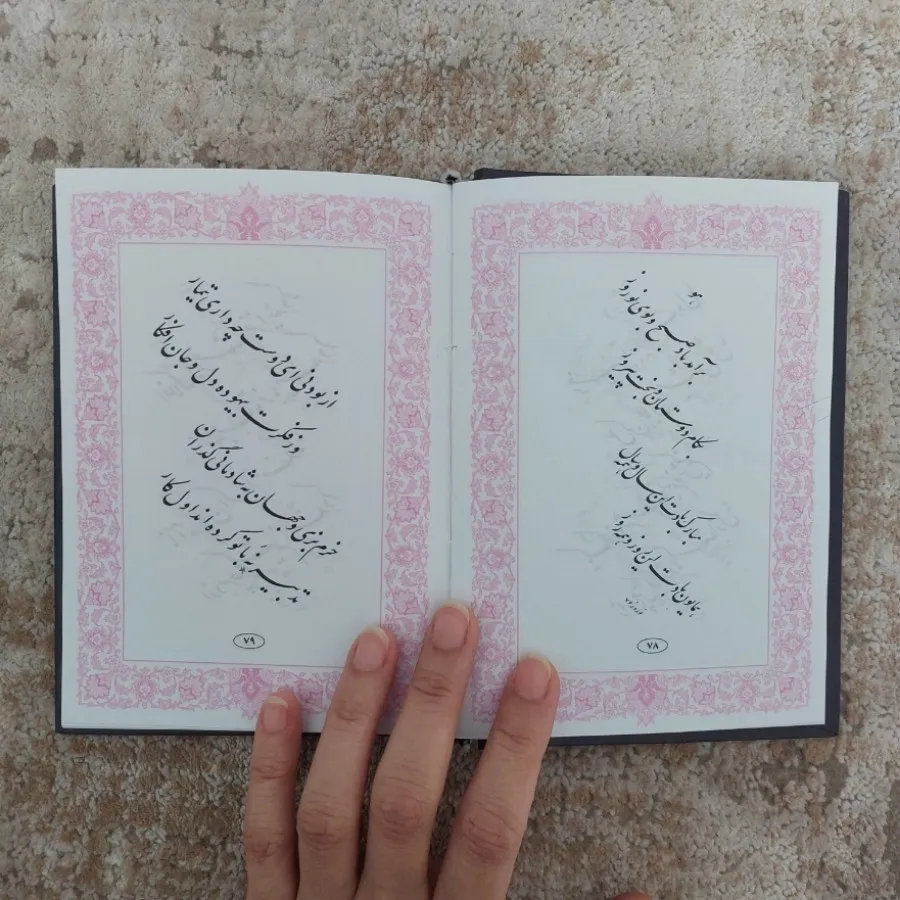 هو
برآمد باد صبح و بوی نوروز
بکام دوستان و بخت پیروز
مبارک بادت این سال و همه سال
همایون بادت این روز و همه روز
۷۸
از بودنی ای دوست چه داری تیمار
وز فکرت بیهوده دل و جان افکار
خرم بزی و جهان بشادمانی گذران
تدبیر نه با تو کرده‌اند اول کار
۷۹